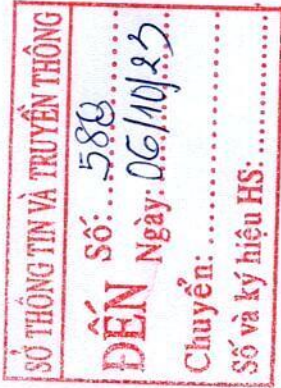 SỞ THÔNG TIN VÀ TRUYỀN THÔNG
ĐẾN Số: 588
Ngày: 06/10/23
Chuyển:
Số và ký hiệu HS: